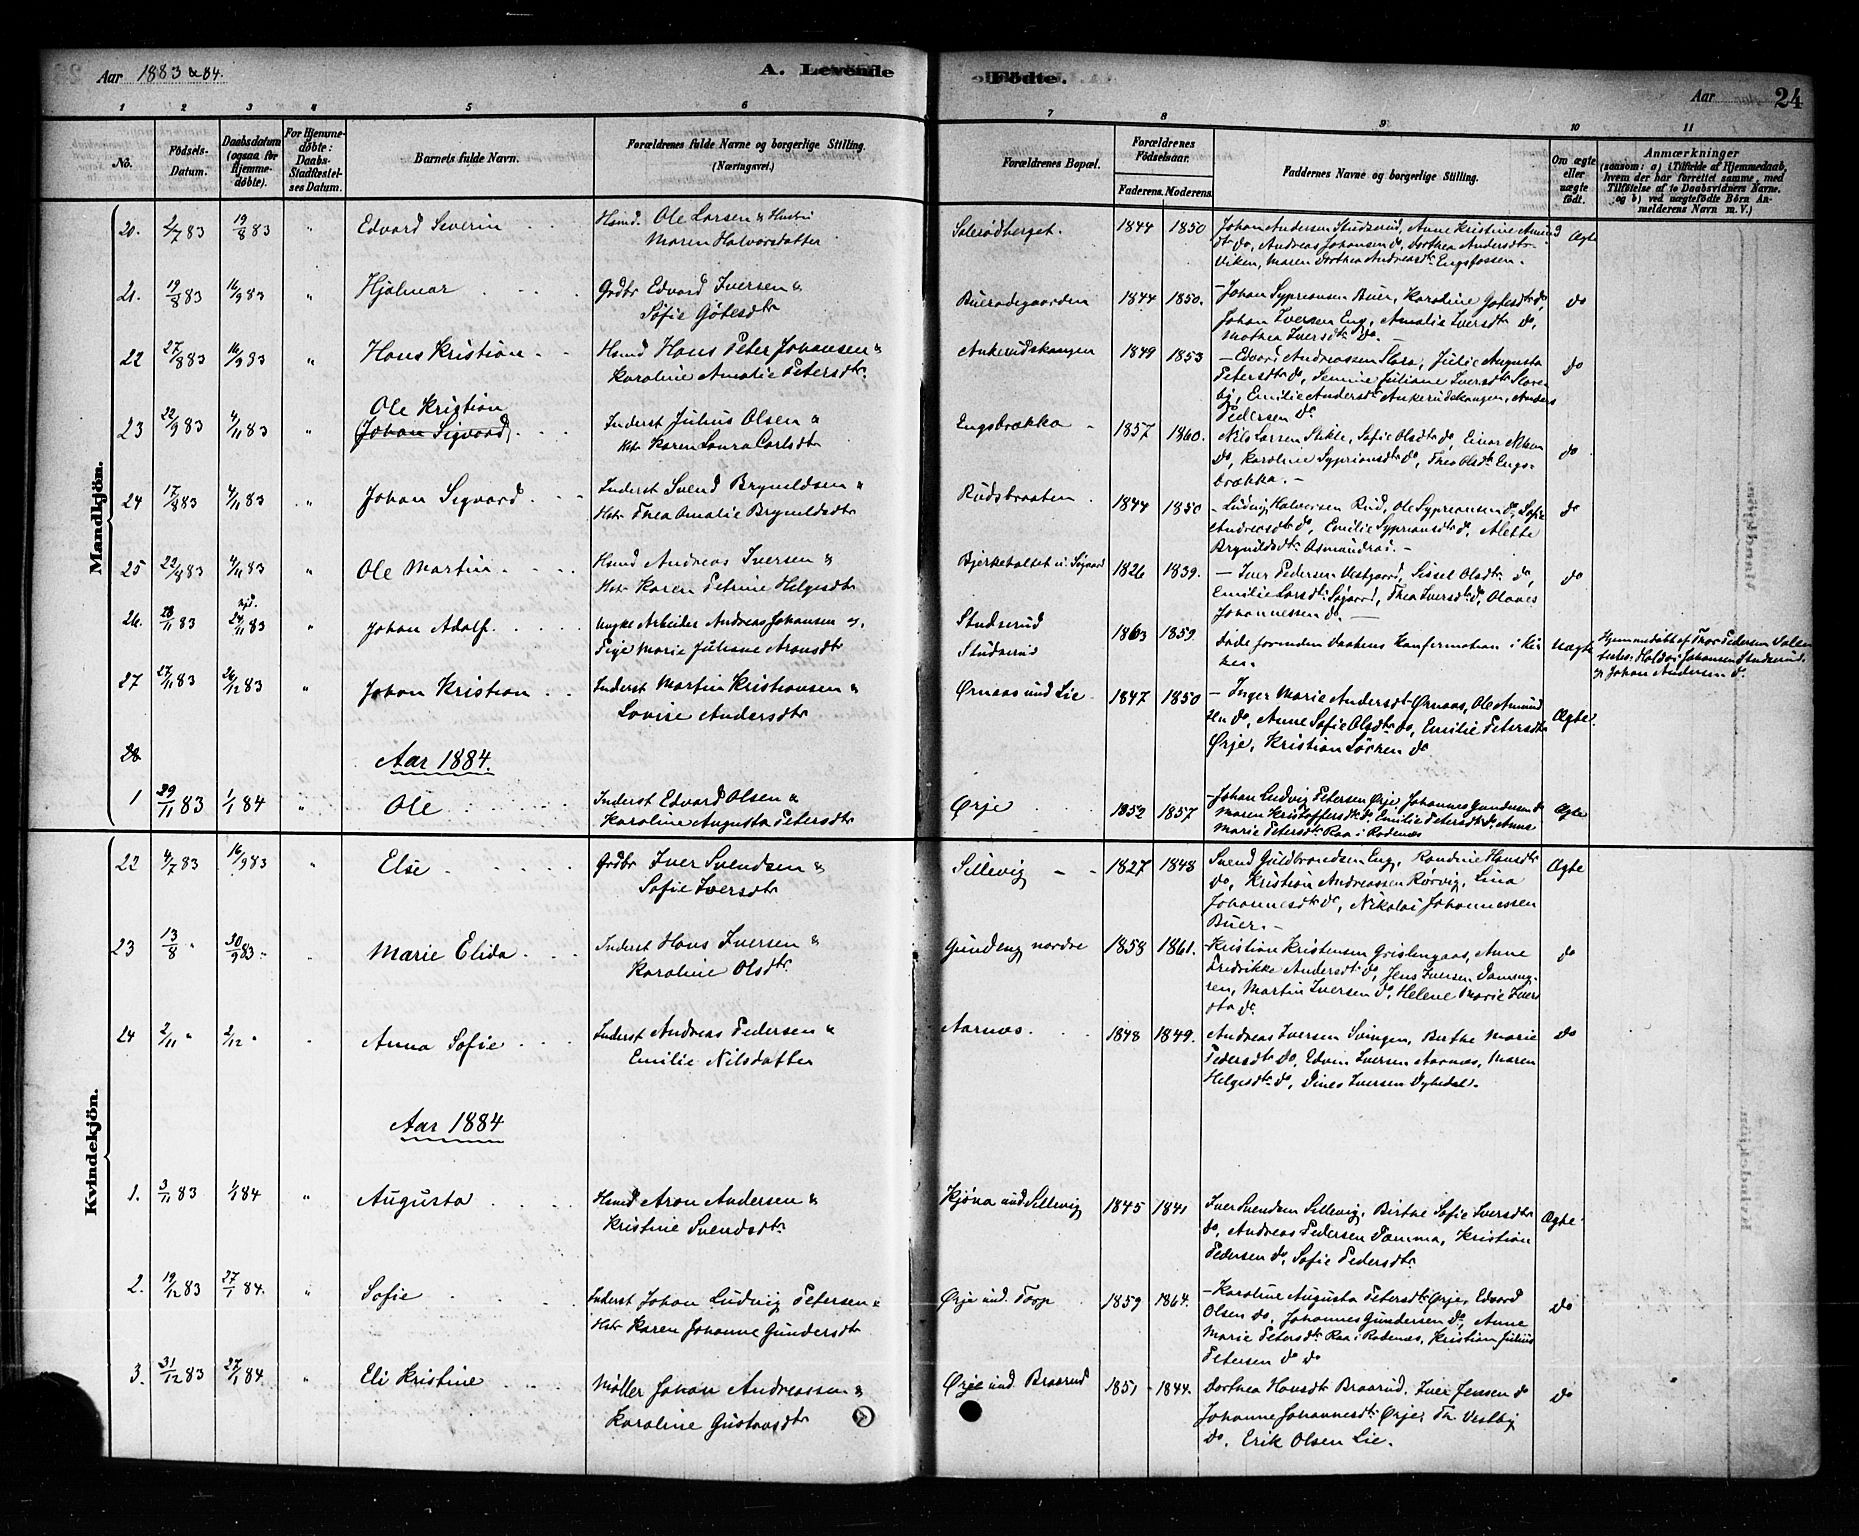 Aar 1883 & 84.
A. Levende Fødte.
Aar
24
1 2 3 4 5 6 7 8 9 10 11
No.
Fødsels-Datum.
Daabsdatum (ogsaa for Hjemme-døbte).
For Hjemme-døbte: Daabs-Stadfæstel-ses Datum.
Barnets fulde Navn.
Forældrenes fulde Navne og borgerlige Stilling. (Næringsvei.)
Forældrenes Bopæl.
Forældrenes Fødselsaar.
Faderens. Moderens.
Faddernes Navne og borgerlige Stilling.
Om ægte eller uægte født.
Anmærkninger
(saasom: a) i Tilfælde af Hjemmedaab, hvem der har forrettet samme, med Tilføielse af to Daabsvidners Navne. og b) ved uægtefødte Børn An-melderens Navn m. V.)
Mandkjön.
20. 2/7 83 19/8 83 " Edvard Severin Husmd. Ole Larsen & Hustru
Maren Halvorsdatter
1844 1850 Johan Andersen Studserud, Anne Kristine
do, Andreas Johansen do, Dorthea Andersdtr
Viken, Maren Dorthea Andreasdtr Engsfossen. Ægte
21. 19/8 83 16/9 83 " Hjalmar Grdbr Edvard Iversen &
Sofie Götesdtr
Buerødegaarden 1844 1850. Johan Syprionsen Buer, Karoline Götesdtr do,
Johan Iversen Eng, Amalie Iversdtr do,
Mathea Iversdtr do. do
22 27/8 83 16/9 83 " Hans Kristian Husmd Hans Peter Johansen &
Karoline Amalie Petersdtr.
Ankerudskangen 1849 1853 Edvard Andreassen Slora, Julie Augusta
Petersdtr do, Semine Juliane Iversdtr
Emilie Andersdtr Ankerudskangen, Anders
Pedersen do do
23 22/9 83 4/11 83 Ole Kristian
Johan Sigvard Inderst Julius Olsen &
Hstr Karen Laura Carlsdtr
Engsbrækka 1857 1860. Nils Larsen Stikle, Sofie Olsdtr do, Einar Nilsen
do, Karoline Syprionsdtr do, Thea Olsdtr Engs-
brækka. do
24 17/8 83 4/11 83 " Johan Sigvard Inderst Svend Brynildsen &
Hstr Thea Amalie Brynildsdtr
Rudsbraaten 1844 1850 Ludvig Halvorsen Rud, Ole Syprionsen do, Sofie
Andreasdtr do, Emilie Syprionsdtr do, Alette
Brynildsdtr do
25 22/8 83 4/11 83 " Ole Martin Husmd Andreas Iversen &
Hstr Karen Petrine Helgesdtr
Bjerketaltet u. Søgaard 1826 1839. Iver Pedersen Vestgaard, Sissel Olsdtr do,
Emilie Larsdtr Søgaard, Thea Iversdtr do, Olaves
Johannessen do. do
26. 28/11 83 29/11 83 " Johan Adolf Ungke Arbeider Andreas Johansen &
Pige Marie Juliane Aronsdtr
Studserud
Studserud 1863 1859. Døde forinden Daabens Konfirmation i Kir
ken. Uægte Hjemmedøbt af Thor Pedersen
Halvor Johansen Studserud
& Johan Andersen do.
27 27/11 83 26/12 83 " Johan Kristian Inderst Martin Kristiansen &
Lovise Andersdtr
Ørnaas und Lie 1847 1850 Inger Marie Andersdtr Ørnaas, Ole Amund
sen do, Anne Sofie Olsdtr do, Emilie Petersdtr
Ørje, Kristian Sörren do Ægte
28
Aar 1884.
1 29/11 83 1/1 84 " Ole Inderst Edvard Olsen &
Karoline Augusta Petersdtr
Ørje 1852 1857 Johan Ludvig Petersen Ørje, Johannes Gundersen do
Maren Kristoffersdtr do, Emilie Petersdtr do, Anne
Marie Petersdtr Raa i Rødenæs Ægte
Kvindekjön.
22 4/7 83 16/9 83 " Else Grdbr Iver Svendsen &
Sofie Iversdtr
Sillevig 1827 1848 Svend Guldbrandsen Eng, Randine Hansdtr
do, Kristian Andreassen Rørvig, Lina
Johannesdtr do, Nikolai Johannessen
Buer. Ægte
23 13/8 " 30/9 83 " Marie Elida Inderst Hans Iversen &
Karoline Olsdtr.
Gundeng nordre 1858 1861. Kristian Kristensen Grislengaas, Anne
Fredrikke Andersdtr do, Jens Iversen
Martin Iversen do, Helene Marie Ivers
dtr do. do
24 2/11 " 2/12 " Anna Sofie Inderst Andreas Pedersen &
Emilie Nilsdatter
Aarnæs. 1848 1849. Andreas Iversen Svingen, Berthe Marie
Pedersdtr do, Edvin Iversen Aarnæs, Maren
Helgesdtr do, Dines Iversen Dybedal. do
Aar 1884
1. 3/11 83 1/1 84 " Augusta Husmd Aron Andersen &
Kristine Svendsdtr
Kjøna und Sillevig 1845 1841 Iver Svendsen Sillevig, Birthe Sofie Iversdtr
do, Andreas Pedersen Damma, Kristian
Pedersen do, Sofie Pedersdtr. Ægte
2. 19/12 83 27/1 84. " Sofie Inderst Johan Ludvig Petersen &
Hstr Karen Johanne Gundersdtr
Ørje und. Torp 1859 1864. Karoline Augusta Petersdtr Ørje, Edvard
Olsen do, Johannes Gundersen do, Anne
Marie Petersdtr Raa i Rødenæs, Kristian Julius
Petersen do do do
3. 31/12 83 27/1 84 " Eli Kristine Møller Johan Andreassen &
Karoline Gustavsdtr
Ørje und. Braarud 1851 1844. Dorthea Hansdtr Braarud, Iver Jensen do
Johanne Johannesdtr Ørje, Th. Vestby
do, Erik Olsen Lie. do